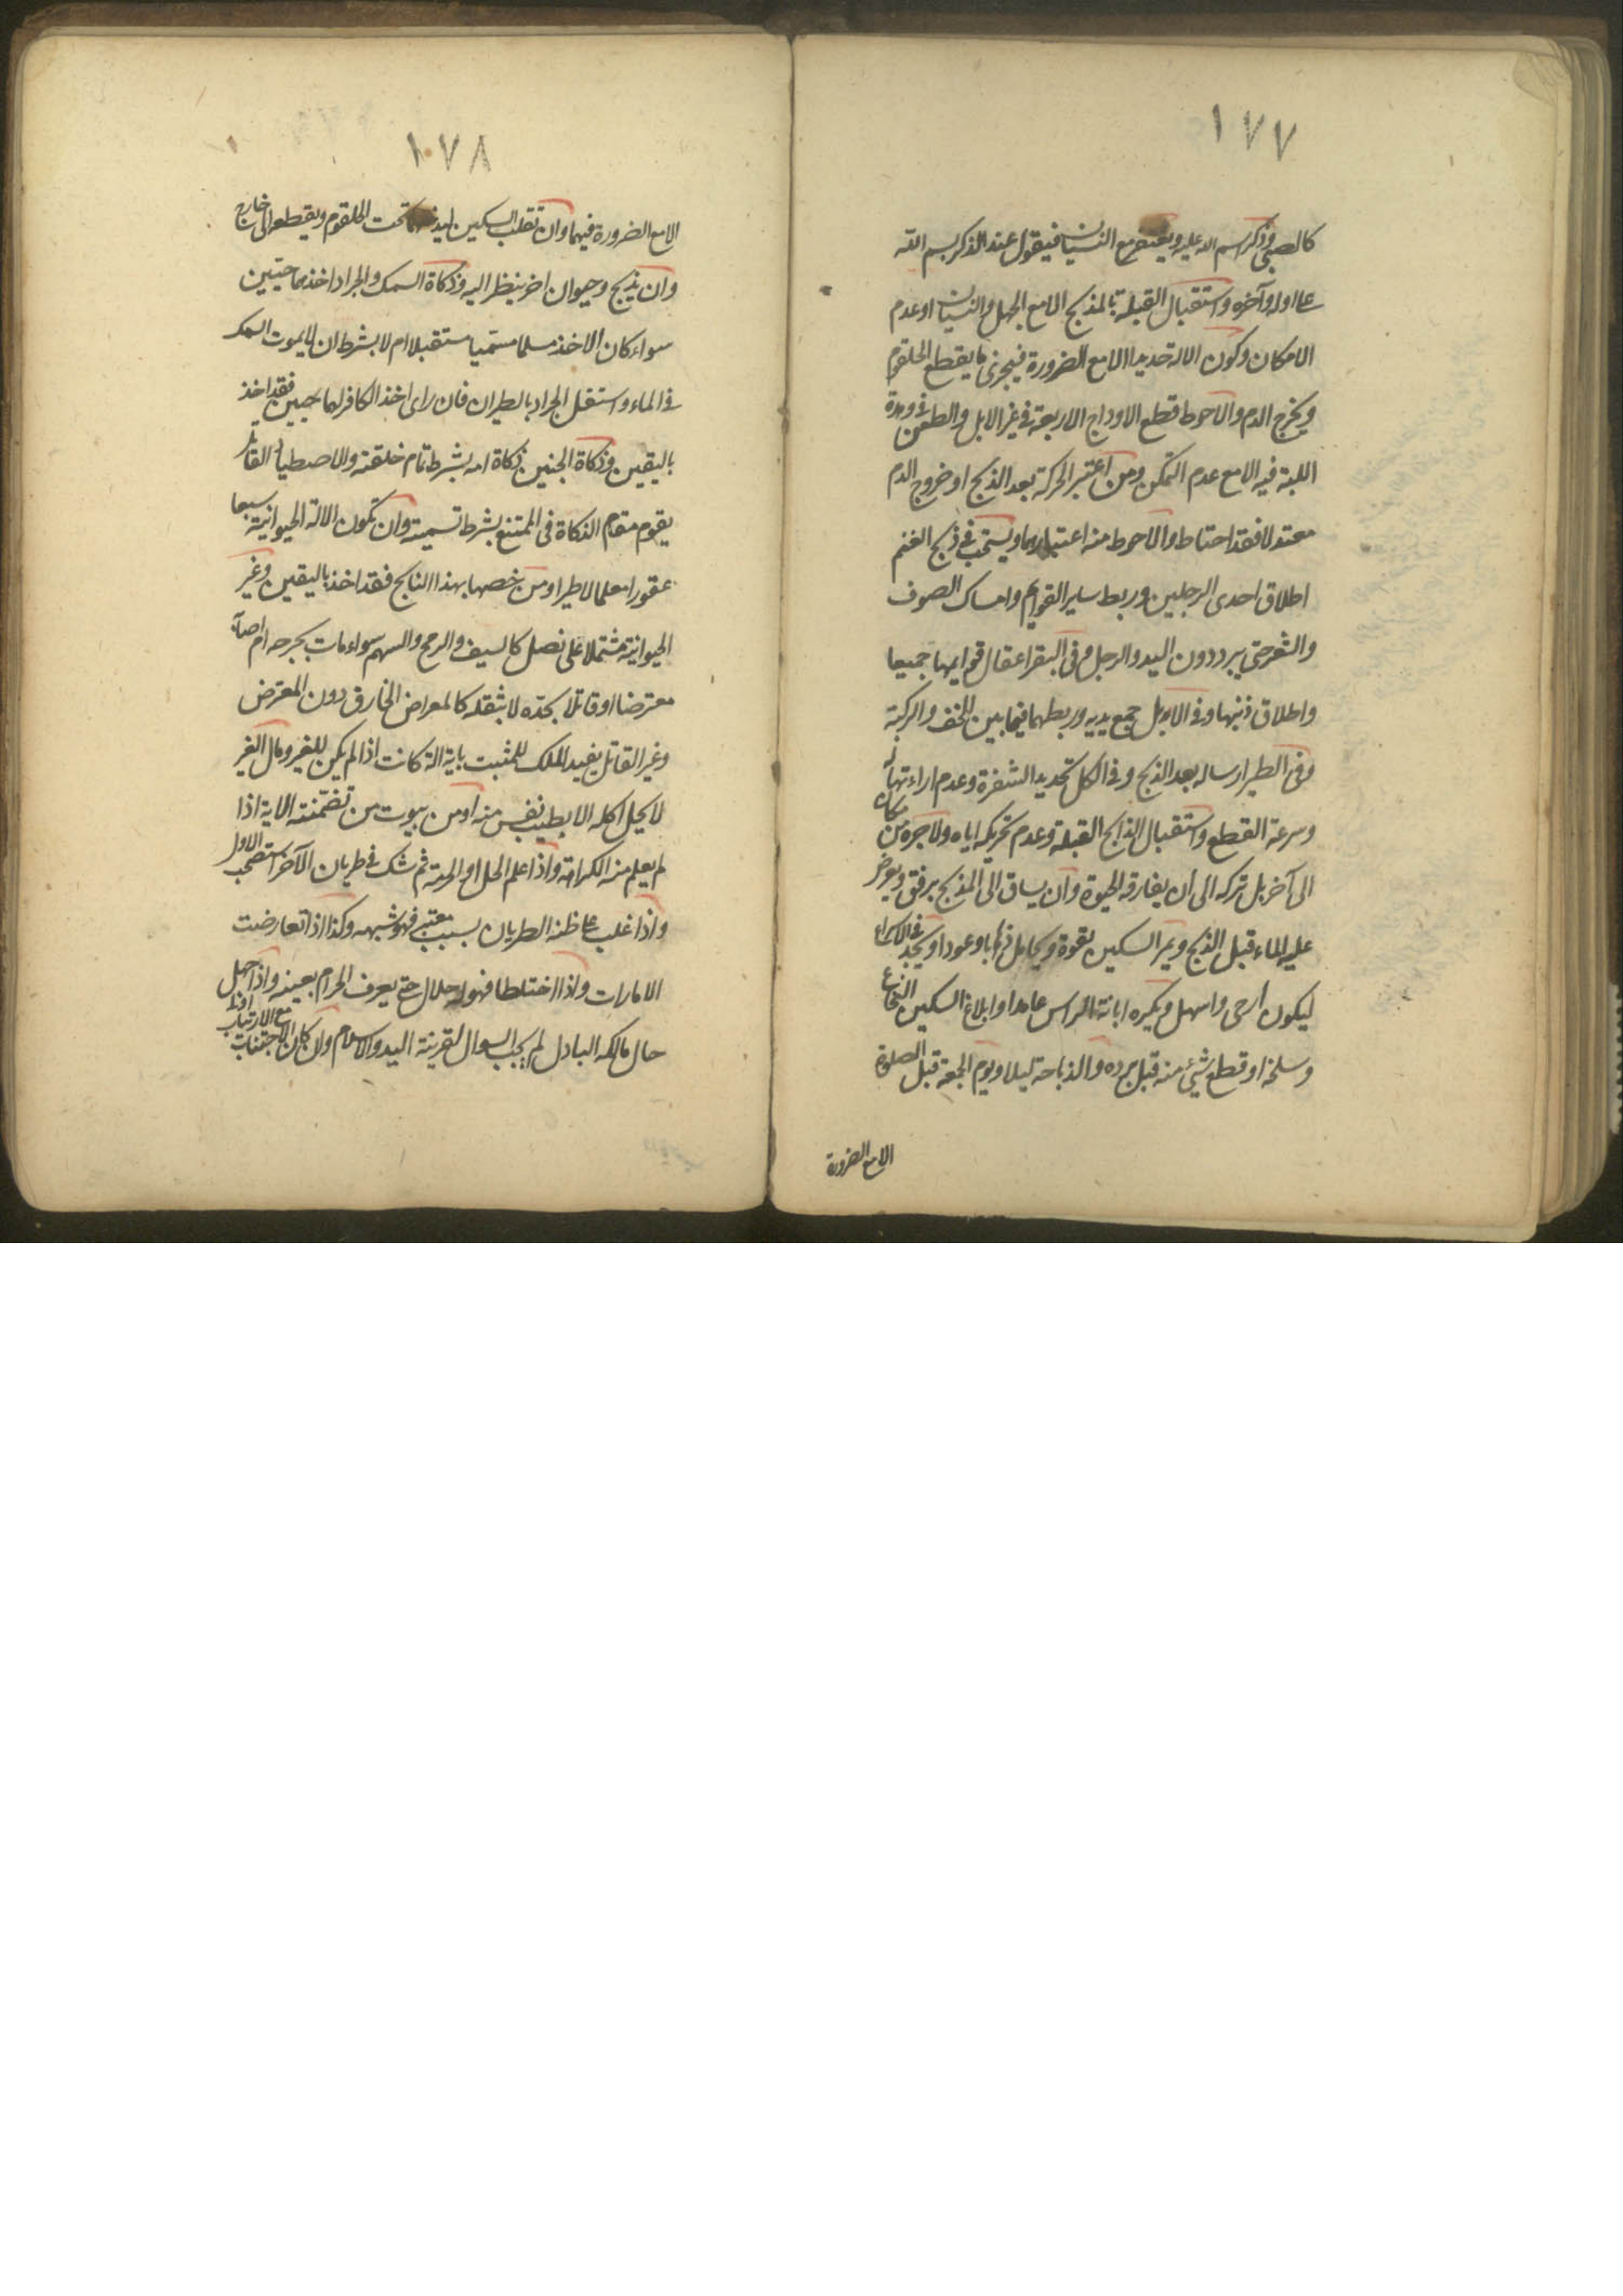 ١٧٧
كالصبي وذكر اسم الله عليه ويغتفر مع النسيان فيقول عند الذكر بسم الله
على اوله وآخره واستقبال القبلة بالمذبح الا مع الجهل والنسيان او عدم
الامكان وكون الالة حديدا الا مع الضرورة فيجزى ما يقطع الحلقوم
ويخرج الدم والاحوط قطع الاوداج الاربعة في غير الابل والطعن في وهدة
اللبة فيه الا مع عدم التمكن ومن اعتبر الحركة بعد الذبح او خروج الدم
معتدلا فقد احتاط والاحوط منه اعتبارهما ويستحب في ذبح الغنم
اطلاق احدى الرجلين وربط ساير القوايم وامساك الصوف
والشعر حتى يبرد دون اليد والرجل وفى البقر اعقال قوايمها جميعا
واطلاق ذنبها وفي الابل جمع يديه وربطهما فيما بين الخف والركبة
وفى الطير ارساله بعد الذبح وفي الكل تحديد الشفرة وعدم اراءتها له
وسرعة القطع واستقبال الذابح القبلة وعدم تحريكه اياه ولا جره من مكان
الى آخر بل تركه الى ان يفارقه الحيوة وان يساق الى المذبح برفق ويعرض
عليه الماء قبل الذبح ويمر السكين بقوة ويحامل ذهابا وعودا ويجد في الاسراع
ليكون ارحى واسهل ويكره ابانة الراس عامدا وابلاغ السكين النخاع
وسلخه او قطع شيء منه قبل برده والذباحة ليلا ويوم الجمعة قبل الصلوة
الا مع الضرورة
١٧٨
الا مع الضرورة فيهما وان تقلب السكين ليدخلها تحت الحلقوم ويقطع الى خارج
وان يذبح وحيوان اخر ينظر اليه وذكاة السمك والجراد اخذهما حيين
سواء كان الاخذ مسلما مسميا مستقبلا ام لا بشرط ان لا يموت السمك
في الماء واستقل الجراد بالطيران فان راى اخذ الكافر لهما حيين فقد اخذ
باليقين وذكاة الجنين ذكاة امه بشرط تمام خلقته والاصطياد القاتل
يقوم مقام الذكاة فى الممتنع بشرط تسميته وان تكون الالة الحيوانية سبعا
عقورا معلما لا طيرا ومن خصها بهذا النابح فقد اخذ باليقين وغير
الحيوانية مشتملا على نصل كالسيف والرمح والسهم سواء مات بجرحه ام اصابه
معترضا او قاتلا بحدّه لا بثقله كالمعراض الخارق دون المعترض
وغير القاتل يفيد الملك للمثبت باية الة كانت اذا لم يكن للغير ومال الغير
لا يحل اكله الا بطيب نفس منه او من بيوت من تضمنته الاية اذا
لم يعلم منه الكراهة واذا علم الحل او الحرمة ثم شك في طريان الآخر استصحب الاول
واذا غلب على ظنه الطريان بسبب معتبر فهو شبهه وكذا اذا تعارضت
الامارات واذا اختلطا فهو له حلال حتى يعرف الحرام بعينه واذا جهل
حال مالكه الباذل لم يجب السوال لقرينة اليد والاسلام وان كان الاجتناب
مع الارتياب